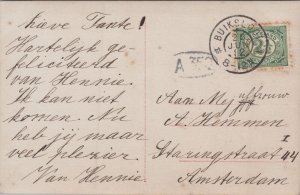 Lieve Tante!
Hartelijk ge-
feliciteerd
van Hennie.
Ik kan niet
komen. Nu
heb jij maar
veel plezier.
Van Hennie
Aan Mejuffrouw
A. Hemmen
I
Staringstraat 44
Amsterdam
BUIKSL
A
2½